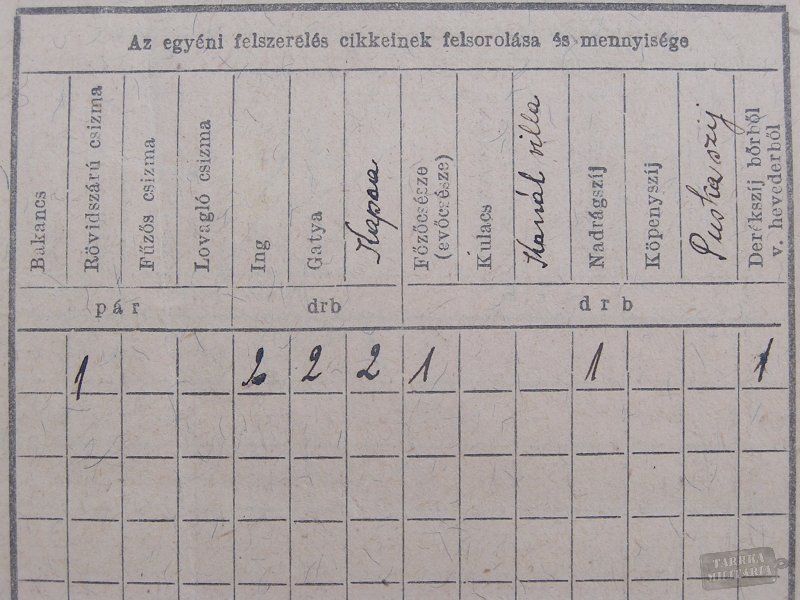 Az egyéni felszerelés cikkeinek felsorolása és mennyisége
Bakancs
Rövidszárú csizma
Fűzős csizma
Lovagló csizma
Ing
Gatya
Kapca
Főzőcsésze
(evőcsésze)
Kulacs
Kanál villa
Nadrágszíj
Köpenyszíj
Puskaszíj
Derékszíj bőrből
v. hevederből
pár
drb
drb
1 2 2 2 1 1 1
TARRKA
MILITÁRIA